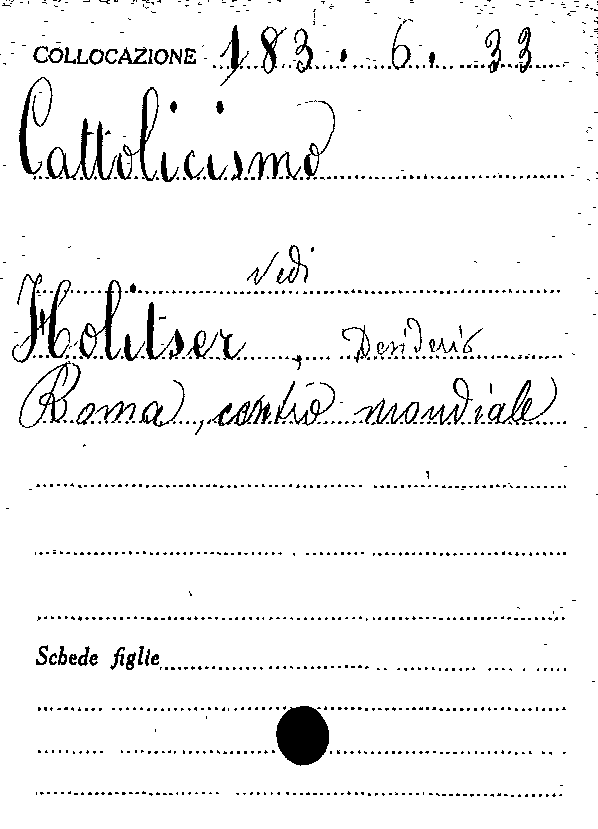 COLLOCAZIONE 183.6.33
Cattolicismo
Vedi
Holitser, Desiderio
Roma, centro mondiale
Schede figlie